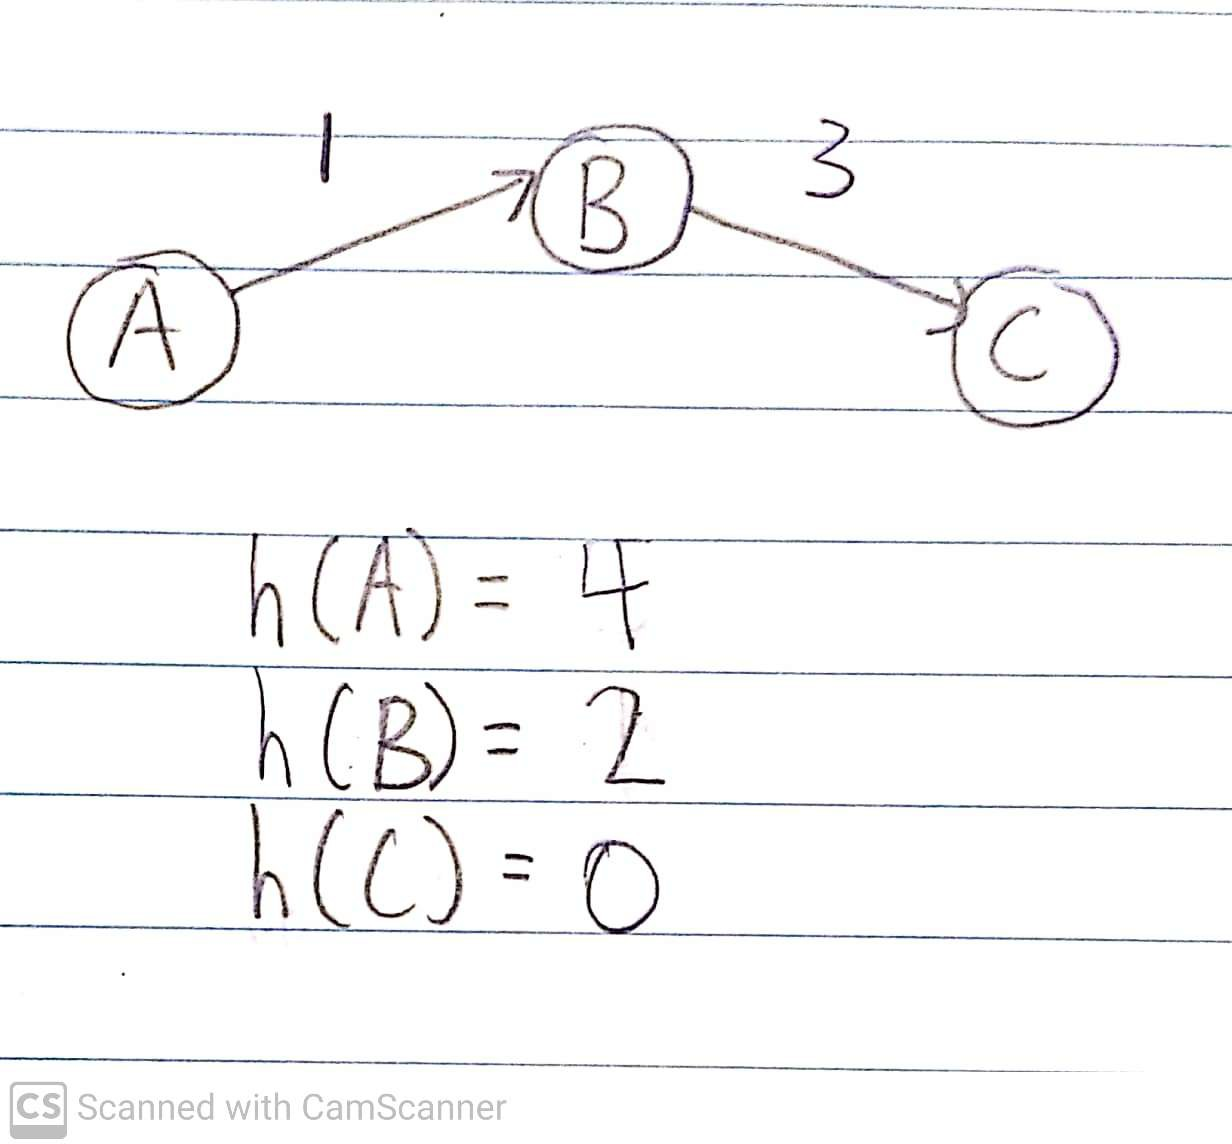 1 3
B
A C
h(A) = 4
h(B) = 2
h(C) = 0
CS Scanned with CamScanner